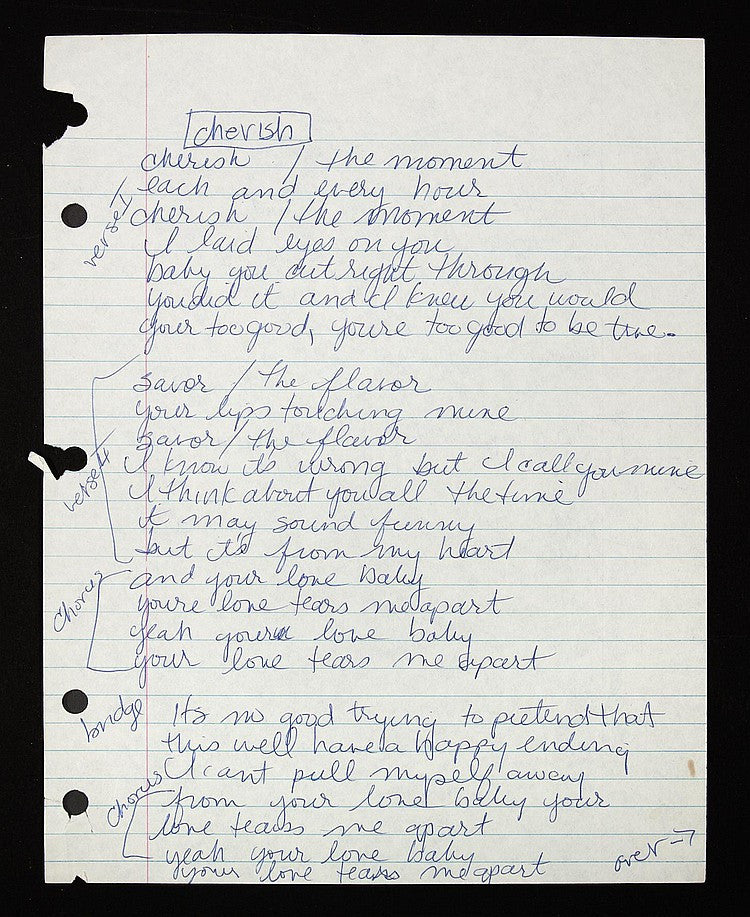 cherish
cherish / the moment
each and every hour
cherish / the moment
I laid eyes on you
baby you cut right through
you did it and I knew you would
your too good, youre too good to be true.
verse
savor / the flavor
your lips touching mine
savor / the flavor
I know its wrong but I call you mine
I think about you all the time
it may sound funny
but it's from my heart
verse
and your love baby
youre love tears me apart
yeah your love baby
your love tears me apart
chorus
bridge
It's no good trying to pretend that
this well have a happy ending
I cant pull myself away
from your love baby your
love tears me apart
yeah your love baby
your love tears me apart
chorus
over →